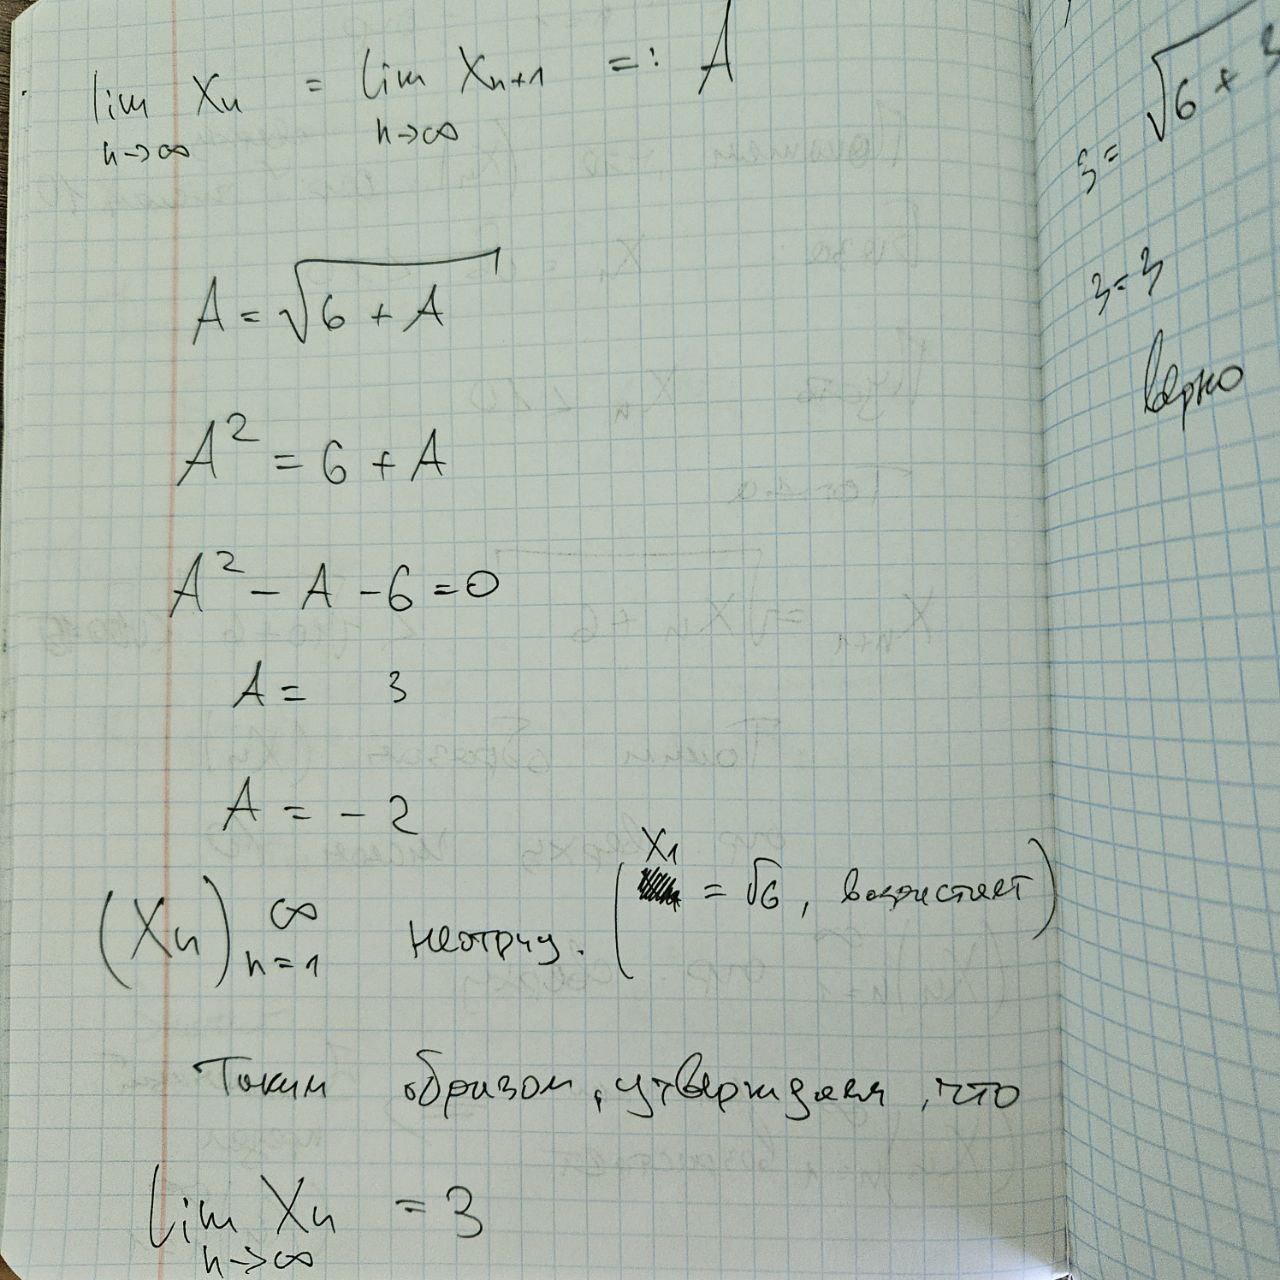 lim Xn = lim Xn+1 =: A
n→∞ n→∞
A = √6 + A
A² = 6 + A
A² - A - 6 = 0
A = 3
A = - 2
(Xn) ∞ n=1 неотриц. (X1 = √6, возрастает)
Таким образом, утверждаем, что
lim Xn = 3
n→∞
3 = √6 + 3
3 = 3
верно